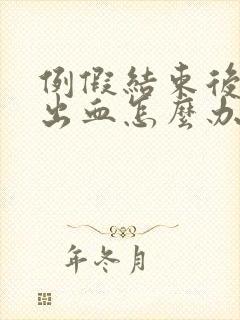 例假結束後
出血怎麼办
年冬月